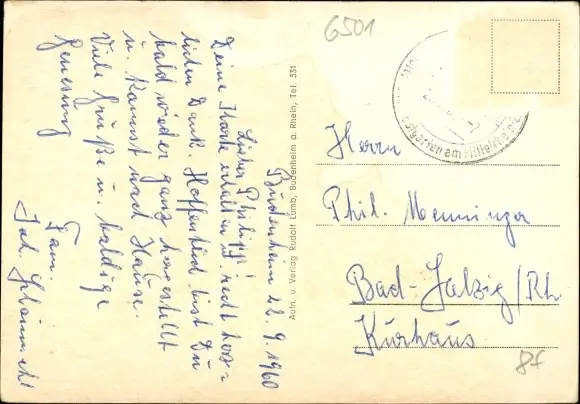 6501
Budenheim 22.9.1960
Lieber Philipp!
Deine Karte erhalten u. recht herz=
lichen Dank. Hoffentlich bist Du
bald wieder ganz hergestellt
u. kannst nach Hause.
Viele Grüße u. baldige
Genesung
Fam.
Jak.
Aufn. u. Verlag Rudolf Lumb, Budenheim a. Rhein, Tel. 331
Obstgarten am Mittelrhein
Herrn
Phil. Menninger
Bad-Salzig/Rh.
Kurhaus
8f